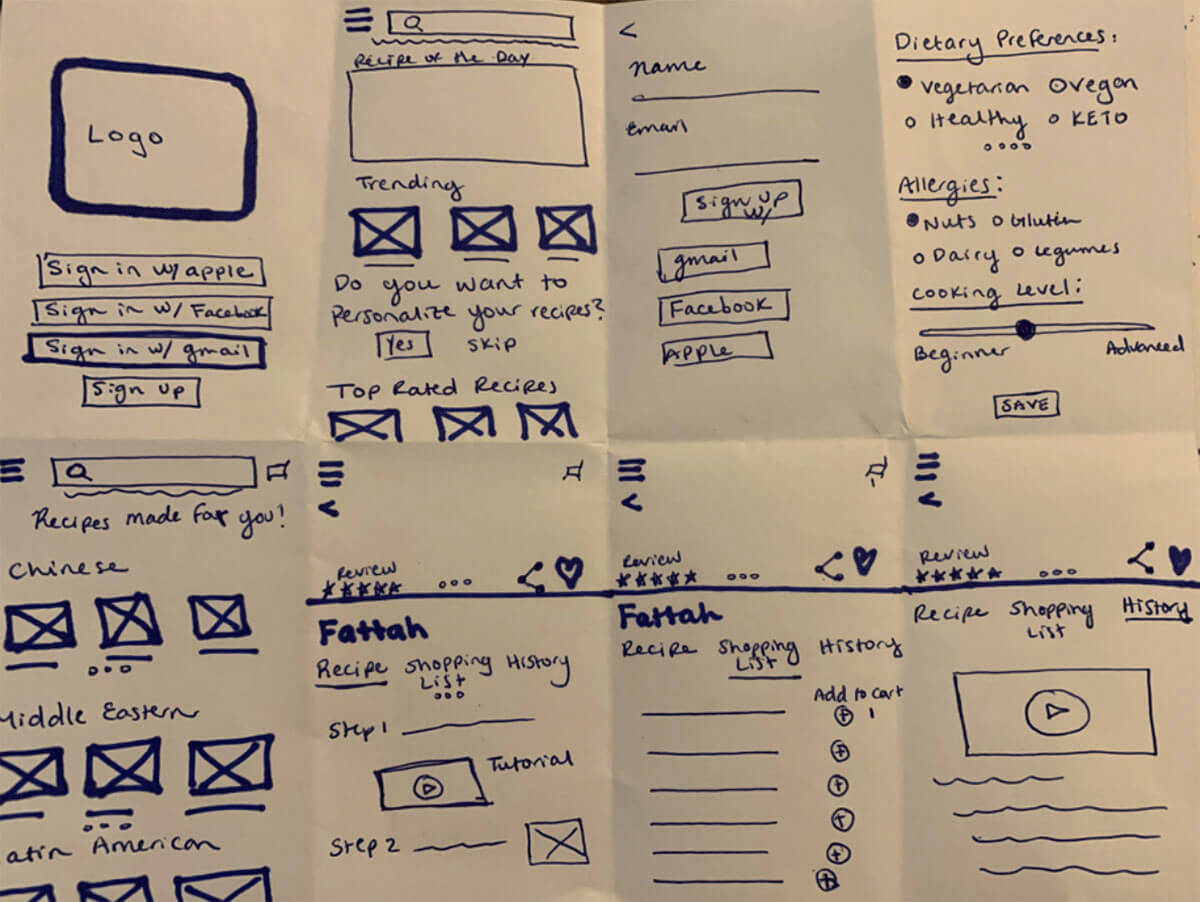 Logo
Sign in w/ apple
Sign in w/ Facebook
Sign in w/ gmail
Sign up
Recipe of the Day
Trending
Do you want to
personalize your recipes?
Yes skip
Top Rated Recipes
<
Name
Email
Sign up
w/
gmail
Facebook
Apple
Dietary Preferences:
Vegetarian Vegan
Healthy KETO
Allergies:
Nuts Gluten
Dairy Legumes
Cooking Level:
Beginner Advanced
SAVE
Recipes made for you!
Chinese
Middle Eastern
atin American
<
Review
Fattah
Recipe Shopping History
List
Step 1
Tutorial
Step 2
<
Review
Fattah
Recipe Shopping History
List
Add to cart
1
<
Review
Recipe Shopping History
List